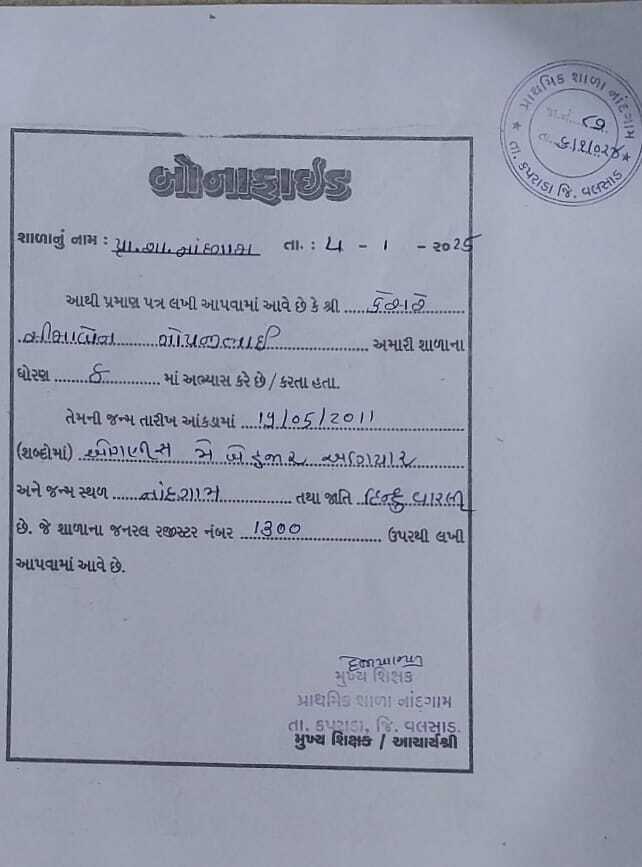 પ્રાથમિક શાળા નાંદગામ
તા. કપરાડા જિ. વલસાડ
બોનાફાઈડ
શાળાનું નામ : પ્રા.શા. નાંદગામ તા. : ૫ - ૧ - ૨૦૨૬
આથી પ્રમાણ પત્ર લખી આપવામાં આવે છે કે શ્રી
ગોપજીભાઈ અમારી શાળાના
ધોરણ ૮ માં અભ્યાસ કરે છે / કરતા હતા.
તેમની જન્મ તારીખ આંકડામાં ૧૫/૦૬/૨૦૧૧
(શબ્દોમાં) મે બે હજાર અગિયાર
અને જન્મ સ્થળ નાંદગામ તથા જાતિ હિન્દુ વારલી
છે. જે શાળાના જનરલ રજીસ્ટર નંબર ૧૩૦૦ ઉપરથી લખી
આપવામાં આવે છે.
મુખ્ય શિક્ષક
પ્રાથમિક શાળા નાંદગામ
તા. કપરાડા, જિ. વલસાડ.
મુખ્ય શિક્ષક / આચાર્યશ્રી